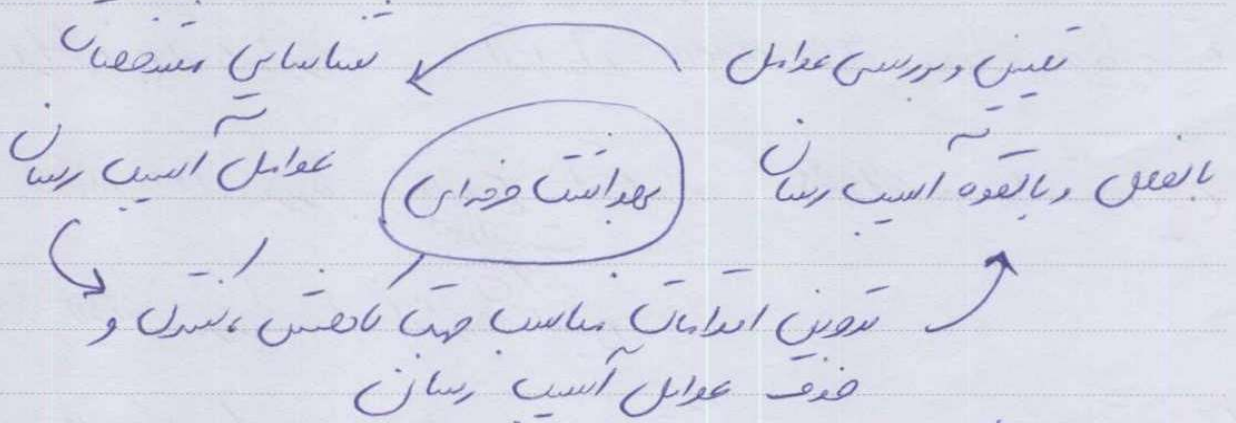 تعیین و بررسی عوامل
بالفعل و بالقوه آسیب رسان
شناسایی مشخصات
عوامل آسیب رسان
بهداشت حرفه‌ای
تدوین اقدامات مناسب جهت کاهش، کنترل و
حذف عوامل آسیب رسان